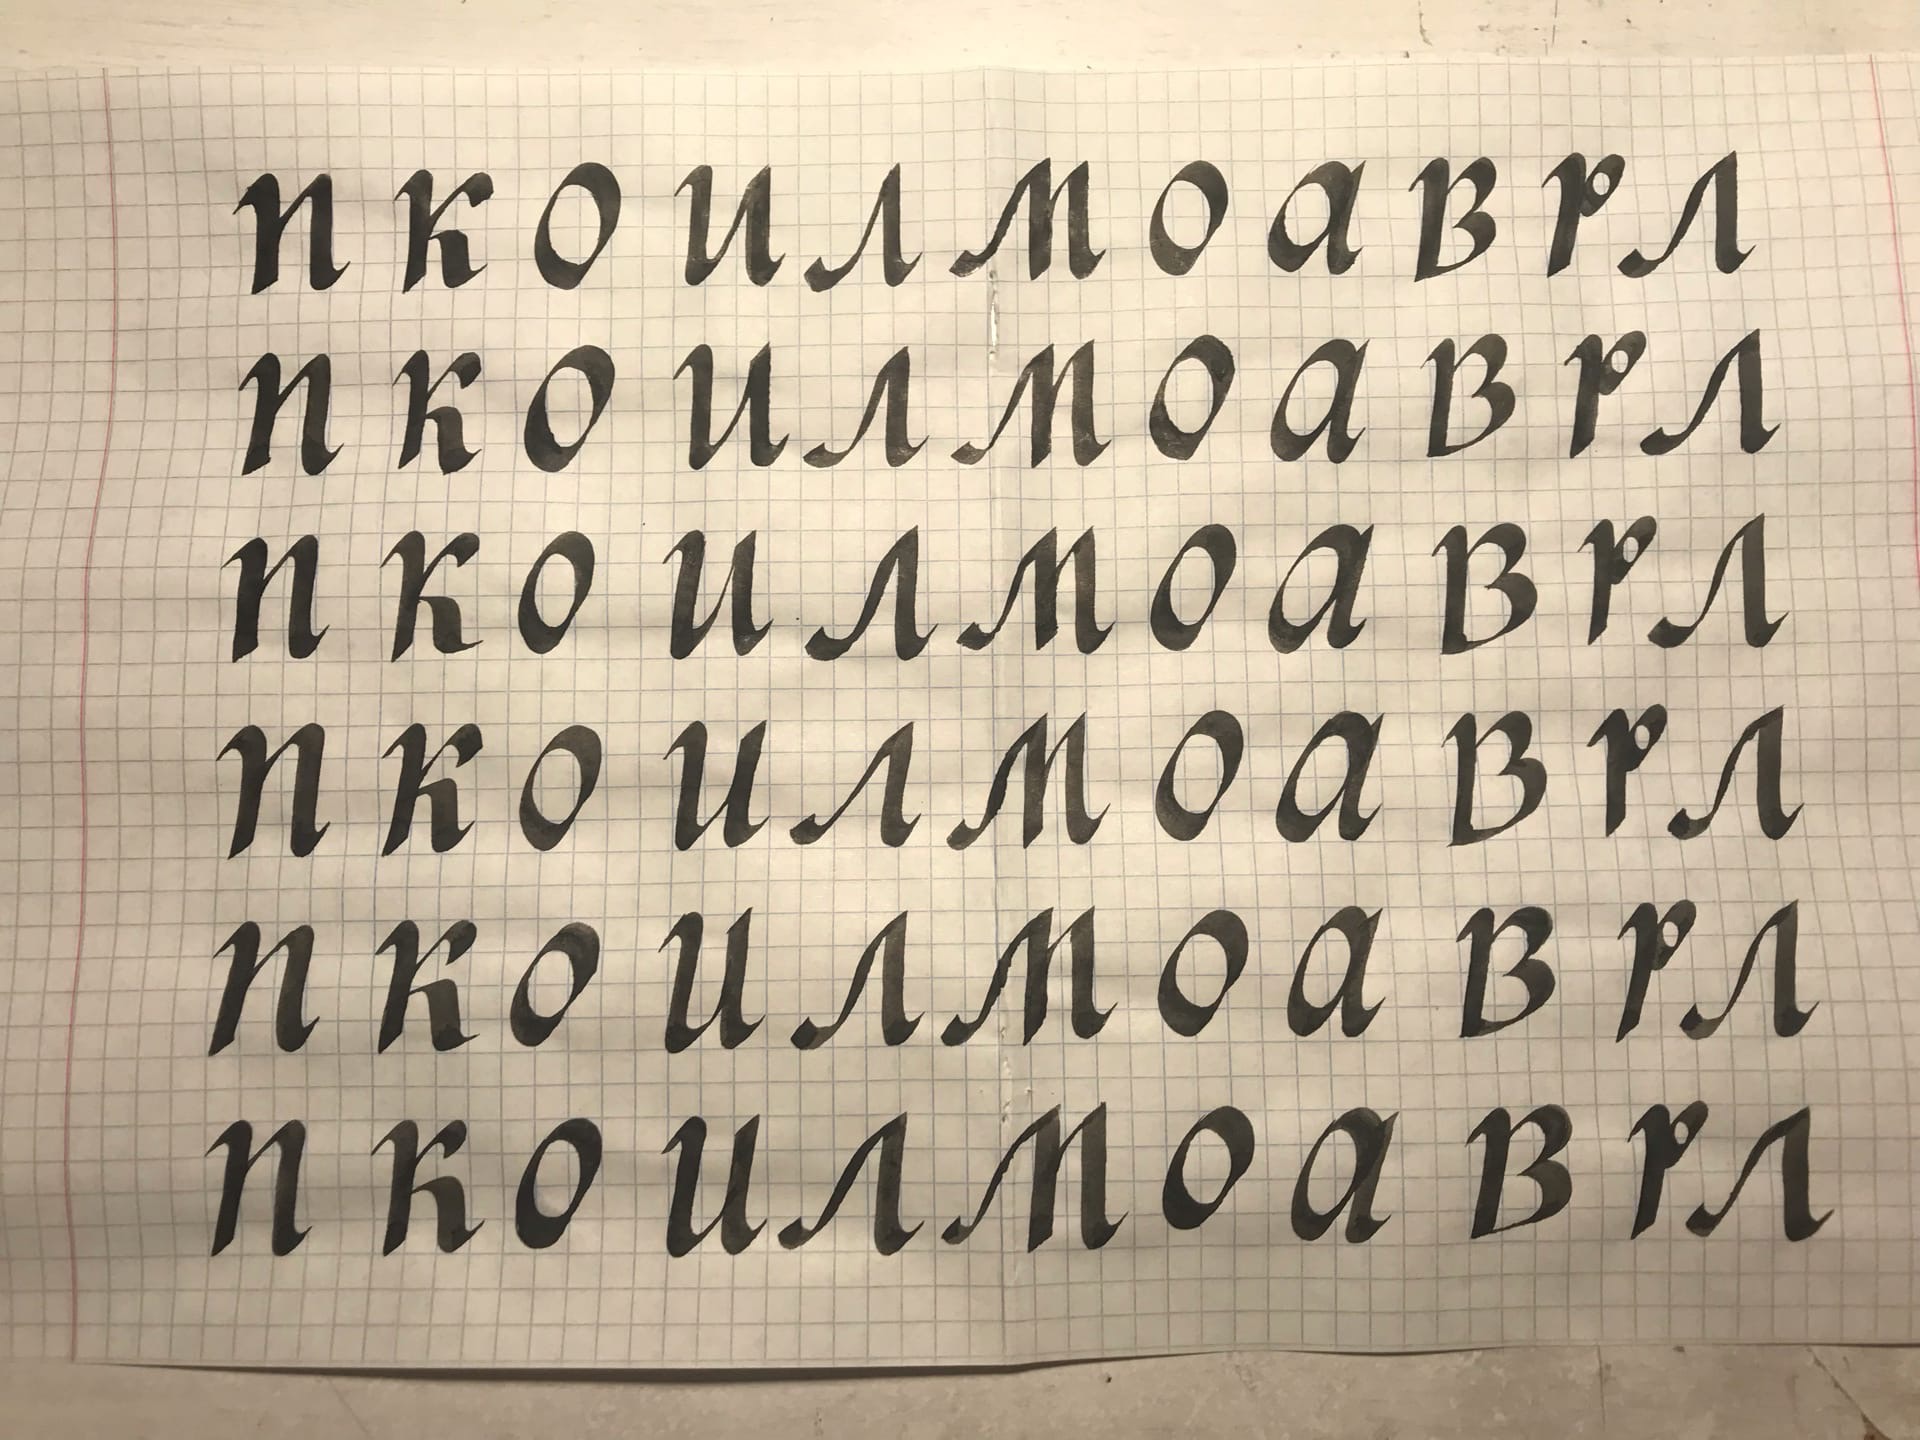 п к о и л м о а в р л
п к о и л м о а в р л
п к о и л м о а в р л
п к о и л м о а в р л
п к о и л м о а в р л
п к о и л м о а в р л